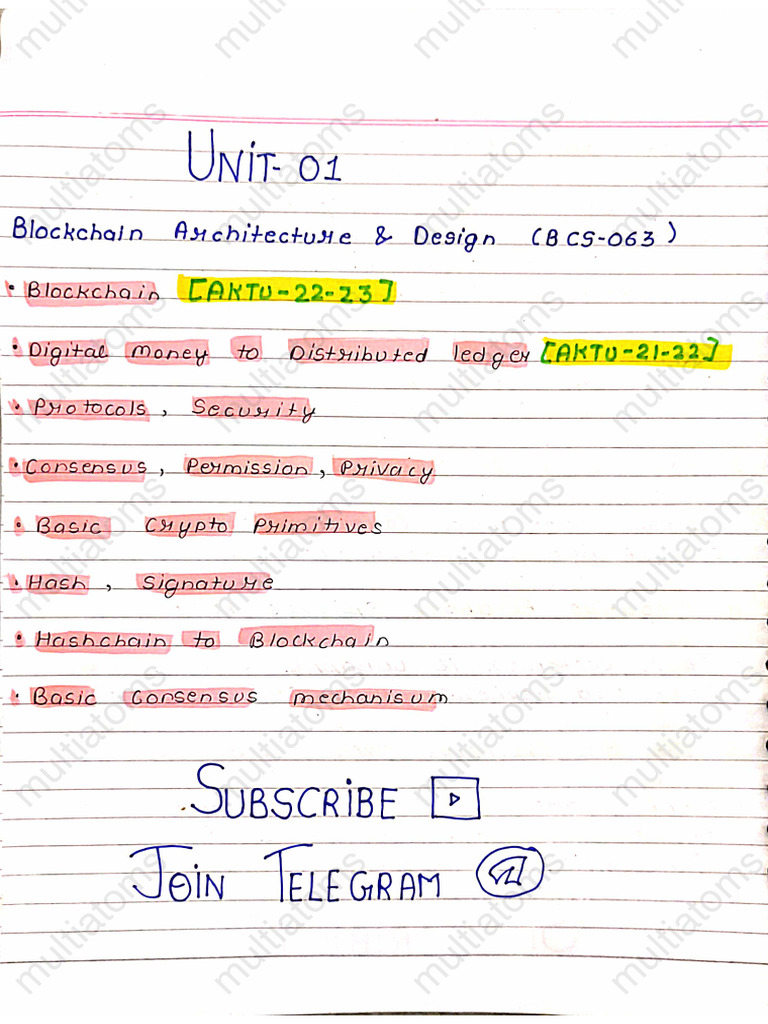 UNIT-01
Blockchain Architecture & Design (BCS-063)
• Blockchain [AKTU-22-23]
• Digital money to Distributed ledger [AKTU-21-22]
• Protocols, Security
• Consensus, Permission, Privacy
• Basic Crypto Primitives
• Hash, Signature
• Hashchain to Blockchain
• Basic Consensus mechanisum
SUBSCRIBE
JOIN TELEGRAM
multiatoms